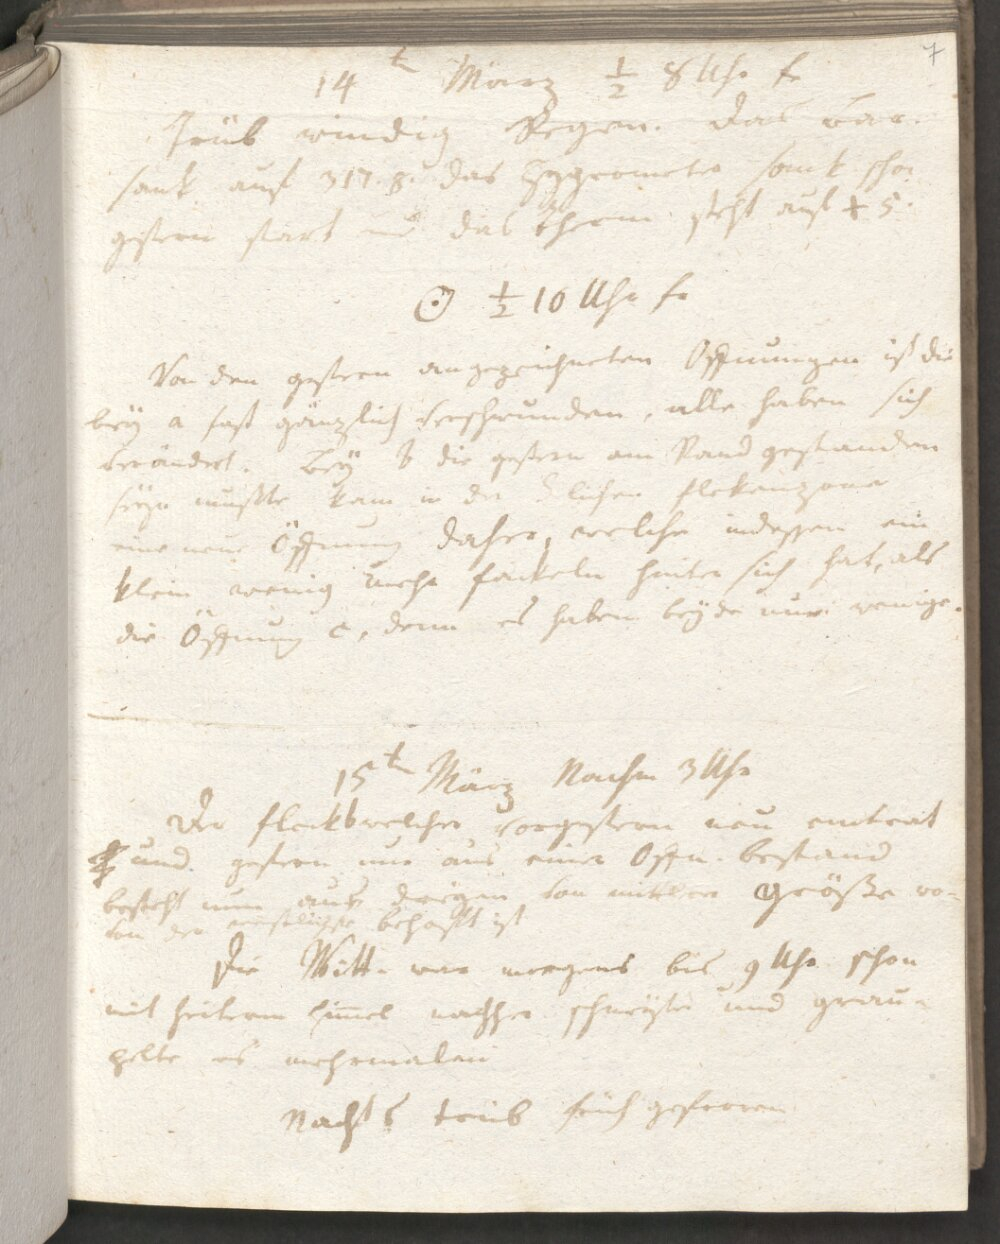 7
14t März 1/2 8 Uhr fr
Trüb windig Regen. das Bar.
sank auf 317. 8. das Hygrometer sank schon
gestern stark und das Therm. steht auf + 5.
☉ 1/2 10 Uhr fr
Von den gestern angezeichneten Öffnungen ist die
bey a fast gänzlich verschwunden, alle haben sich
verändert. Bey b die gestern am Rand gestanden
seyn mußte kam in der lichen flekenzone
eine neue Öffnung daher, welche indessen ein
klein wenig mehr fackeln hinter sich hat, als
die Öffnung c, denn es haben beyde nur wenige.
15ten März Nachm 3 Uhr
Der fleck b welcher vorgestern neu eintrat
und gestern nur aus einer Öffn. bestand
besteht nun aus dreyen von mittlerer Größe wo-
von der westlichste behoft ist
Die Witt. war morgens bis 9 Uhr schon
mit heiterm Himmel nachher schneyte und grau-
pelte es mehrmalen
Nachts trüb früh gefroren